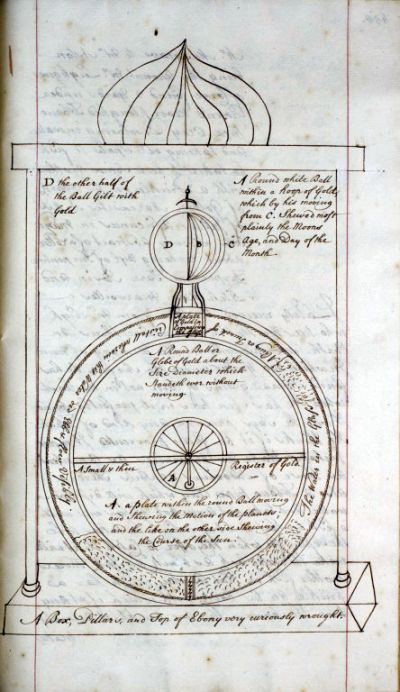 D the other half of
the Ball Gilt with
Gold.
A Round white Ball
within a hoop of Gold,
which by his moving
from C. Shewed most
plainly the Moons
Age, and Day of the
Month.
D
B
C
A plate
of Gold
A Round Ball or
Globe of Gold about the
Size Diameter which
Standeth ever without
moving.
A Small & thin
Register of Gold.
A
A. a plate within the round Ball moving
and Shewing the Motion of the planets
and the like on the other side Shewing
the Course of the Sun.
The Water in the Glass
A Box, Pillars, and Top of Ebony very curiously wrought.